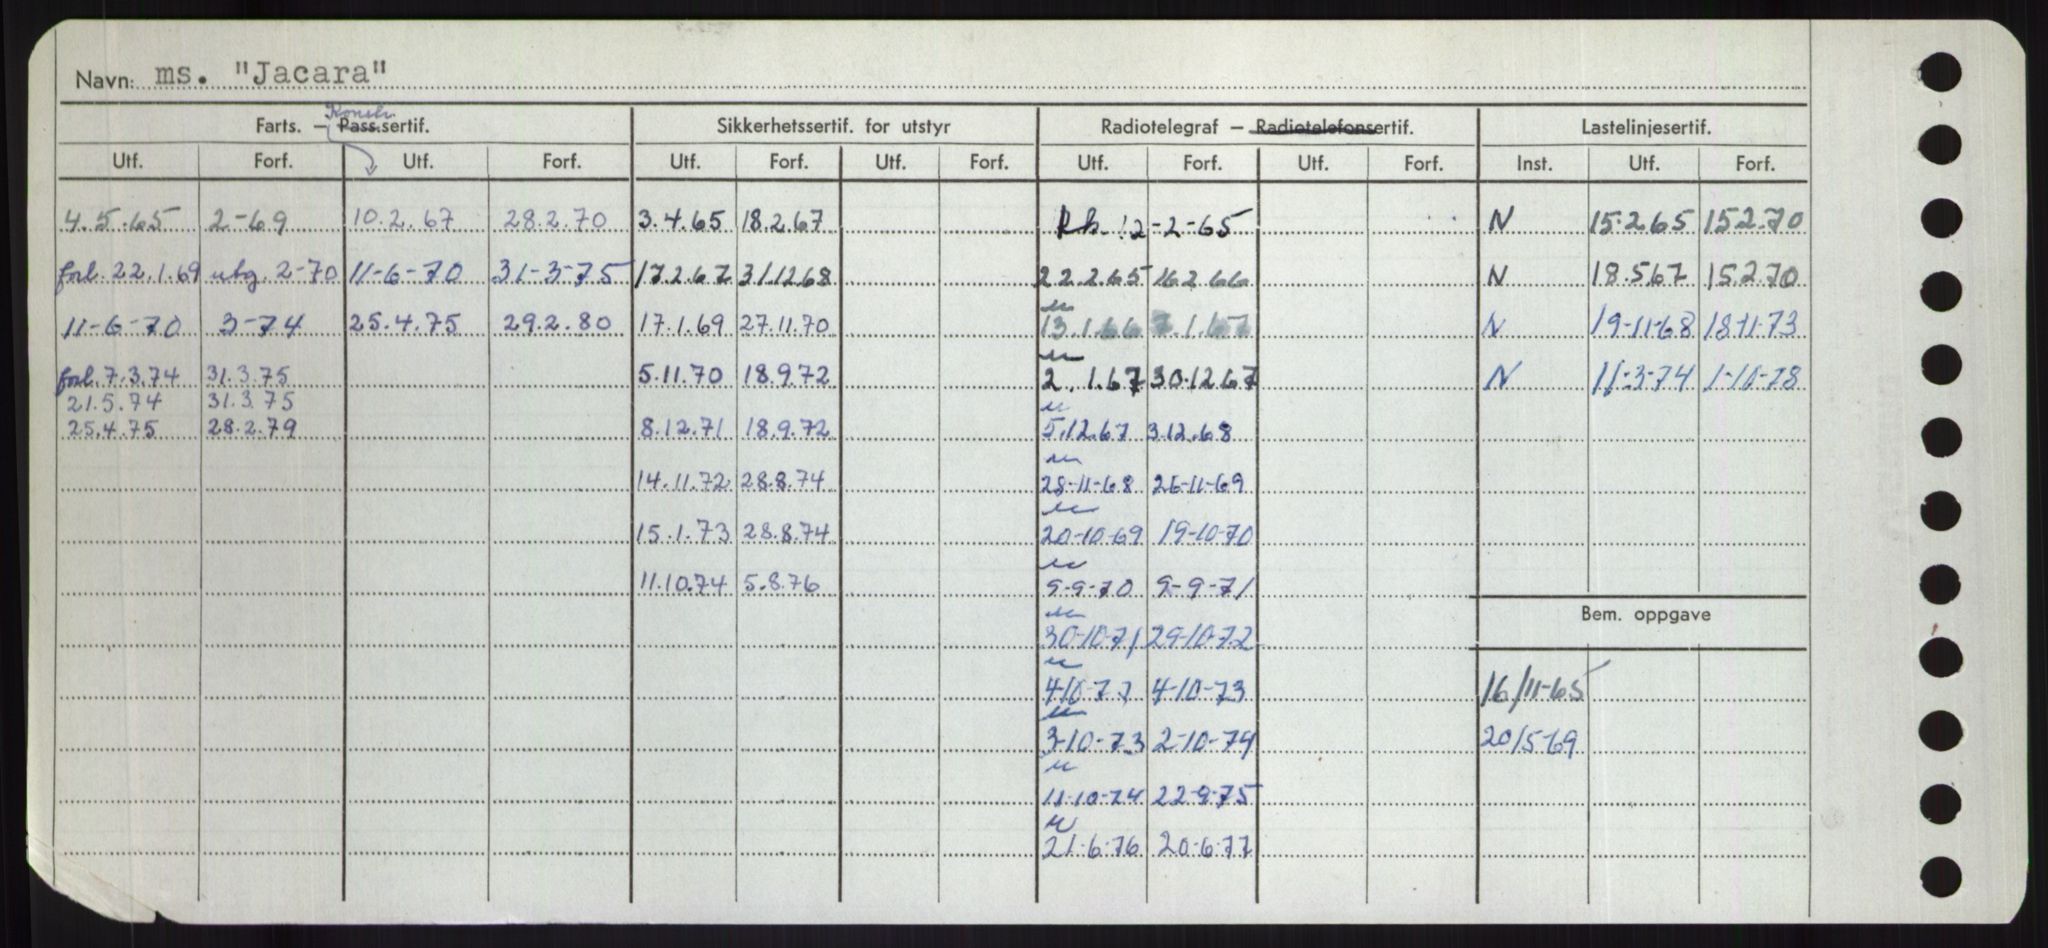 Navn: ms. "Jacara"
Konstr.
Farts. – Pass.sertif. Sikkerhetssertif. for utstyr Radiotelegraf – Radiotelefonsertif. Lastelinjesertif.
Utf. Forf. Utf. Forf. Utf. Forf. Utf. Forf. Utf. Forf. Utf. Forf. Inst. Utf. Forf.
4.5.65 2-69 10.2.67 28.2.70 3.4.65 18.2.67 12-2-65 N 15.2.65 15.2.70
forl. 22.1.69 utg. 2-70 11-6-70 31-3-75 17.2.67 31.12.68 22.2.65 16.2.66 N 18.5.67 15.2.70
11-6-70 3-74 25.4.75 29.2.80 17.1.69 27.11.70 13.1.66 7.1.67 N 19-11-68 18-11-73
forl. 7.3.74 31.3.75 5.11.70 18.9.72 2.1.67 30.12.67 N 11-3-74 1-10-78
21.5.74 31.3.75
25.4.75 28.2.79 8.12.71 18.9.72 5.12.67 3.12.68
14.11.72 28.8.74 28-11-68 26-11-69
15.1.73 28.8.74 20-10-69 19-10-70
11.10.74 5.8.76 9-9-70 9-9-71
Bem. oppgave
30-10-71 29-10-72
4-10-72 4-10-73 16/11-65
3-10-73 2-10-74 20/5-69
11-10-74 22-9-75
21-6-76 20-6-77